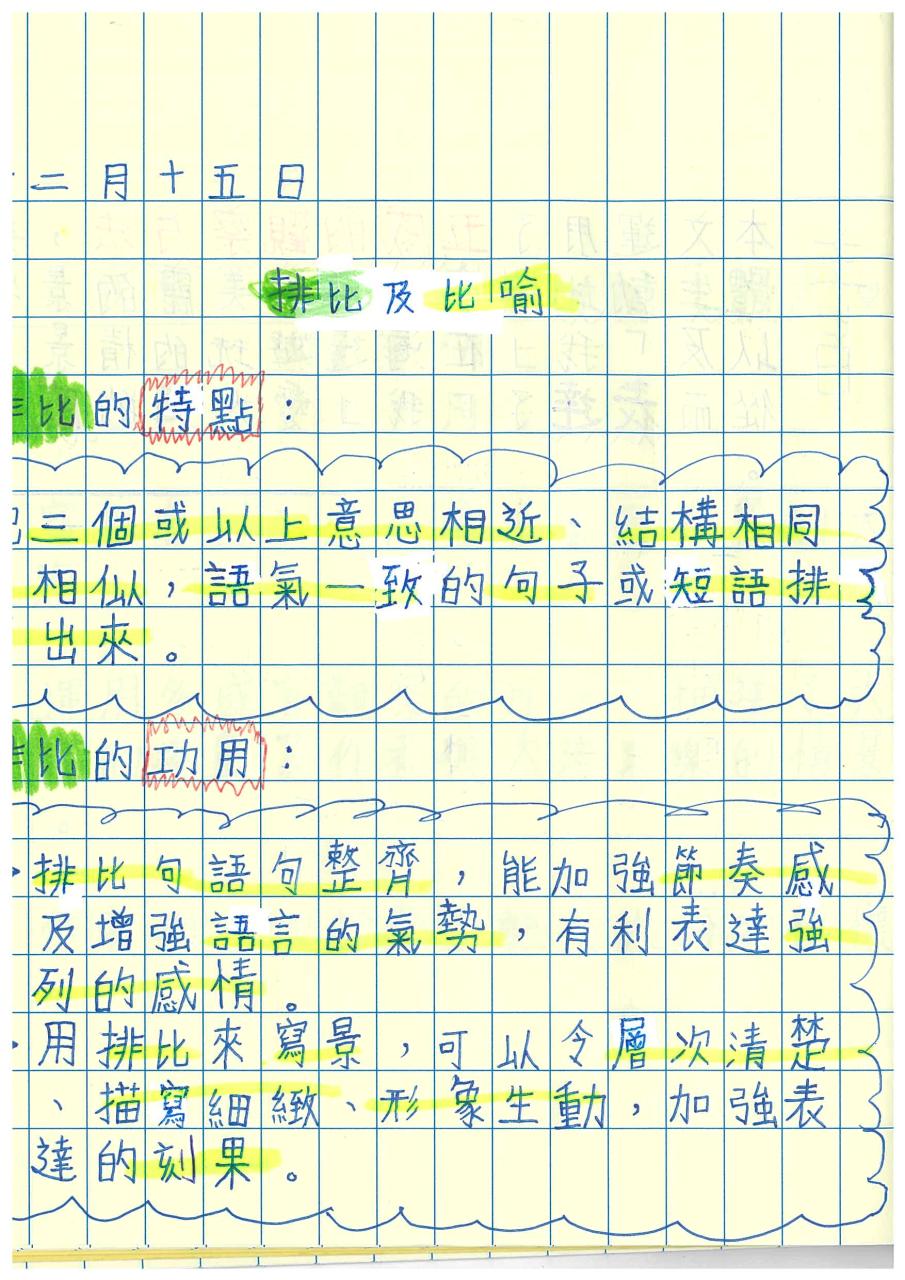 二月十五日
排比及比喻
比的特點：
三個或以上意思相近、結構相同
相似，語氣一致的句子或短語排
出來。
比的功用：
排比句語句整齊，能加強節奏感
及增強語言的氣勢，有利表達強
列的感情。
用排比來寫景，可以令層次清楚
、描寫細緻、形象生動，加強表
達的刻果。